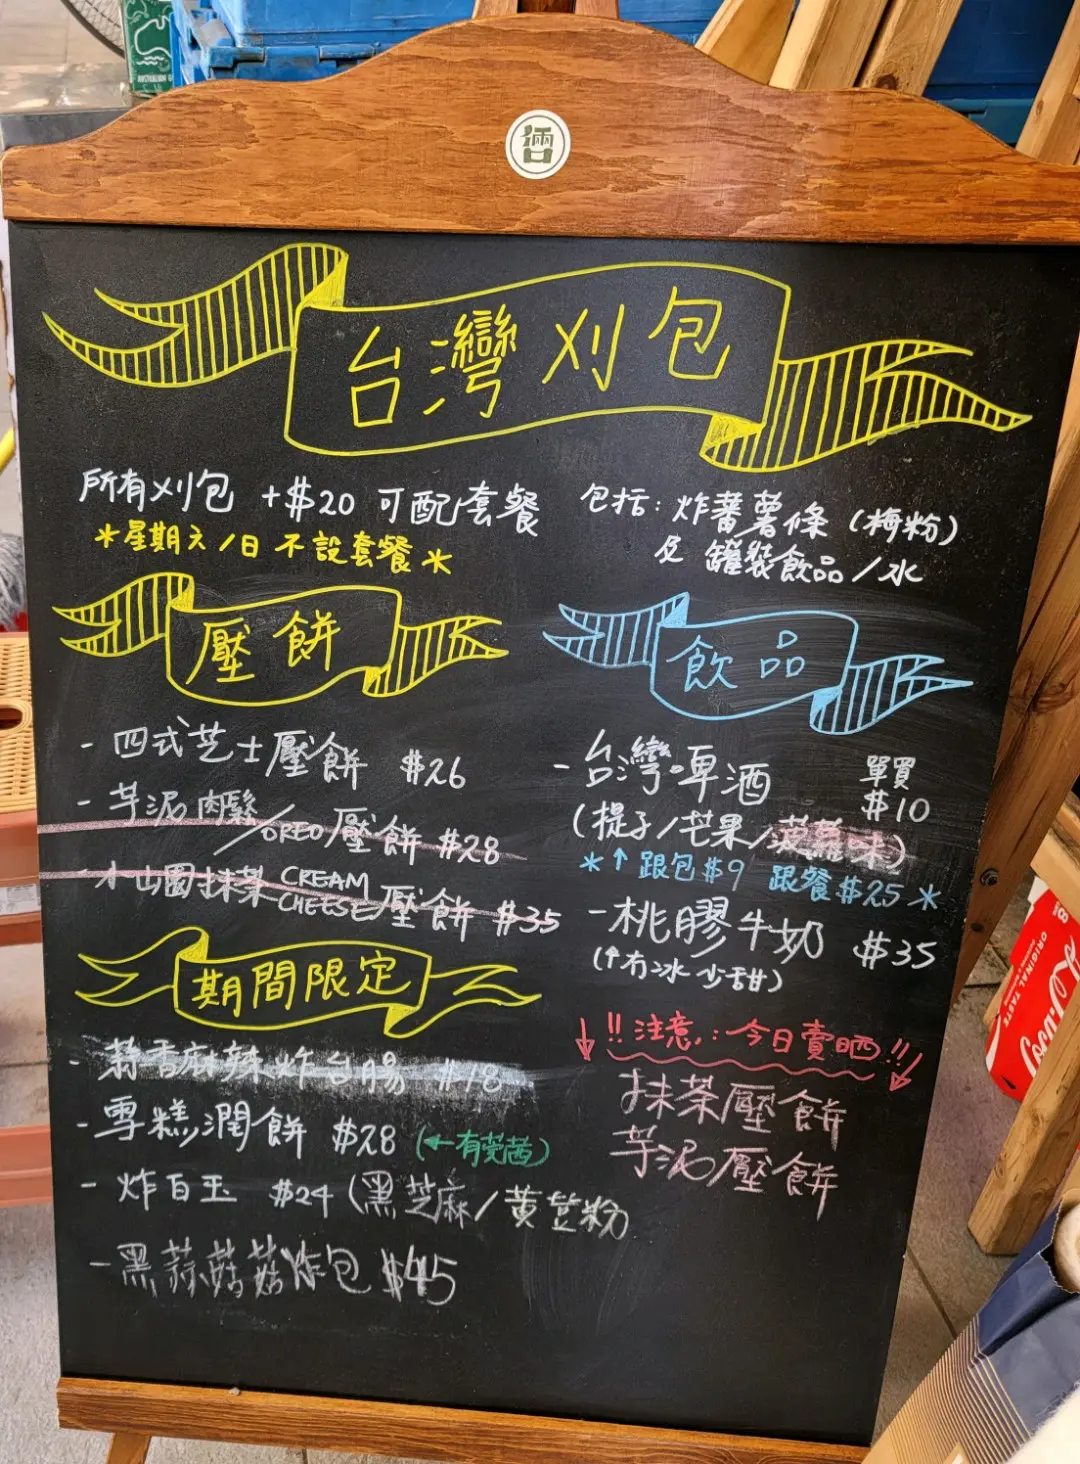 台灣刈包
所有刈包 +$20 可配套餐
*星期六/日 不設套餐*
包括: 炸蕃薯條 (梅粉)
及 罐裝飲品/水
壓餅
- 四式芝士壓餅 $26
- 芋泥肉鬆/OREO壓餅 $28
- 小山園抹茶CREAM CHEESE壓餅 $35
飲品
- 台灣啤酒 單買 $10
(提子/芒果/菠蘿味)
*↑跟包$9 跟餐$25*
- 桃膠牛奶 $35
(↑冇冰少甜)
期間限定
- 蒜香麻辣炸台腸 $18
- 雪糕潤餅 $28 (←有芫茜)
- 炸白玉 $24 (黑芝麻/黃荳粉
- 黑蒜菇菇炸包 $45
↓!!注意:今日賣晒!!↓
抹茶壓餅
芋泥壓餅
AUSTRALIAN
ORIGINAL TASTE